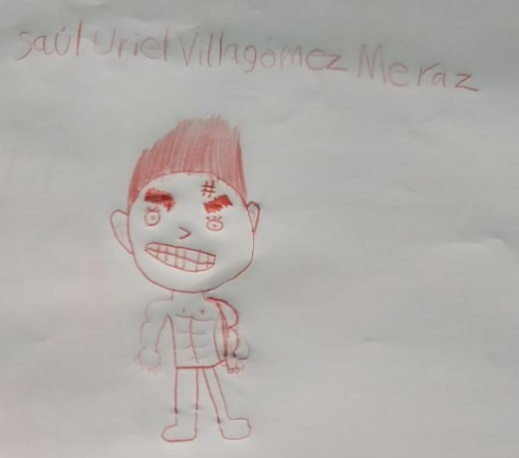 Saúl Uriel Villagómez Meraz